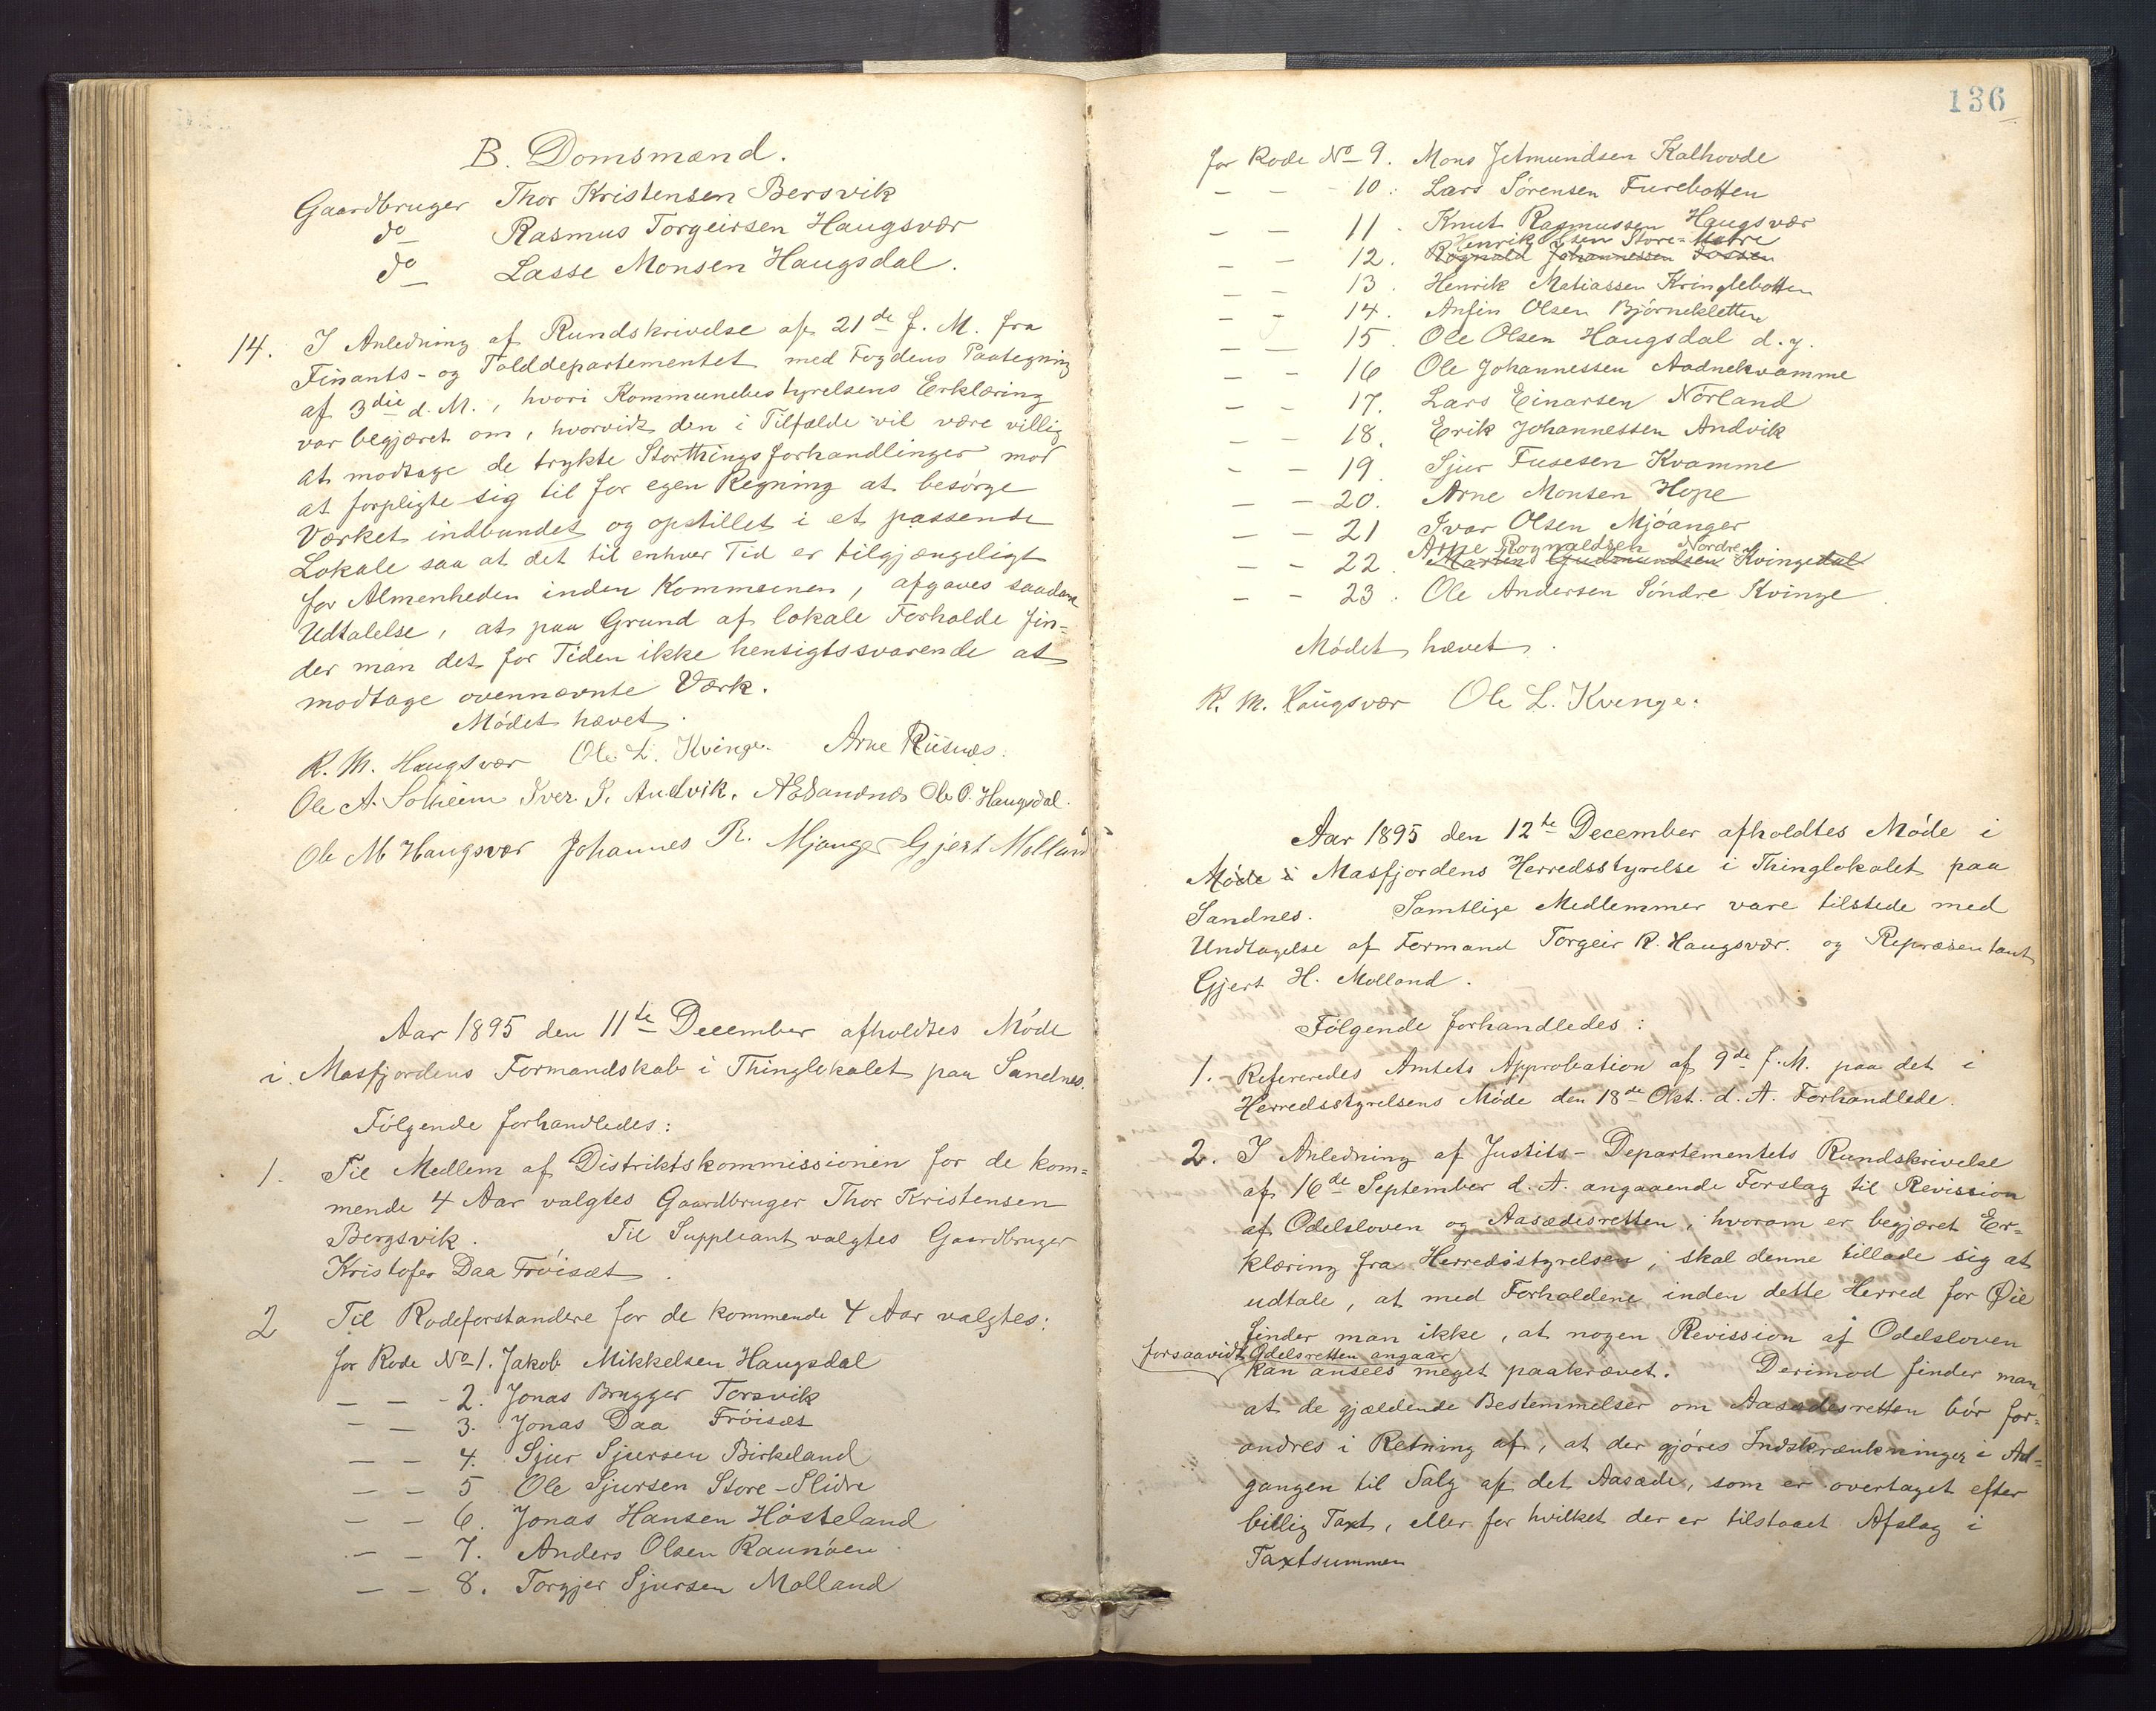 B. Domsmænd.
Gaardbruger Thor Kristensen Bersvik
do Rasmus Torgeirsen Haugsvær
do Lasse Monsen Haugsdal.
14. I Anledning af Rundskrivelse af 21de f. M. fra
Finants- og Tolddepartementet med Fogdens Paategning
af 3die d. M., hvori Kommunebestyrelsens Erklæring
var begjæret om, hvorvidt den i Tilfælde vil være villig
at modtage de trykte Storthingsforhandlinger mod
at forpligte sig til for egen Regning at besørge
Værket indbundet og opstillet i et passende
Lokale saa at det til enhver Tid er tilgjængeligt
for Almenheden inden Kommunen, afgaves saadan
Udtalelse, at paa Grund af lokale Forholde fin-
der man det for Tiden ikke hensigtssvarende at
modtage ovennævnte Værk.
Mødet hævet.
R. M. Haugsvær Ole L. Kvinge. Arne Riisnes.
Ole A. Solheim Iver I. Andvik. A E Sandnes Ole O. Haugsdal.
Ole M Haugsvær Johannes R. Mjanger Gjert Molland
Aar 1895 den 11te December afholdtes Møde
i Masfjordens Formandskab i Thinglokalet paa Sandnes.
Følgende forhandledes:
1. Til Medlem af Distriktskommissionen for de kom-
mende 4 Aar valgtes Gaardbruger Thor Kristensen
Bergsvik. Til Suppleant valgtes Gaardbruger
Kristofer Daa Frøiset.
2 Til Rodeforstandere for de kommende 4 Aar valgtes:
for Rode No 1. Jakob Mikkelsen Haugsdal
- - - 2. Jonas Brygger Torsvik
- - 3. Jonas Daa Frøiset
- - 4. Sjur Sjursen Birkeland
- - 5 Ole Sjursen Store-Slidre
- - 6. Jonas Hansen Høsteland
- - 7. Anders Olsen Raunøen
- - 8. Torgjer Sjursen Molland
136
for Rode No 9. Mons Jetmundsen Kalhovde
- - - 10. Lars Sørensen Furebotten
- - 11. Knut Rasmussen Haugsvær
Henrik Olsen Store-Matre
- - 12. Rognald Johannessen Fossen
- - 13. Henrik Matiassen Kringlebotten
- - 14. Anfin Olsen Bjørnekletten
- - 15. Ole Olsen Haugsdal d. y.
- - 16 Ole Johannessen Aadnekvamme
- - 17. Lars Einarsen Nørland
- - 18. Erik Johannessen Andvik
- - 19. Sjur Fusesen Kvamme
- - 20. Arne Monsen Hope
- - 21 Ivar Olsen Mjøanger
Arne Rognaldsen Nordre
- - 22. Martin Gudmundsen Kvingedal
- - 23. Ole Andersen Søndre Kvinge
Mødet hævet.
R. M. Haugsvær Ole L. Kvinge.
Aar 1895 den 12te December afholdtes Møde i
Møde i Masfjordens Herredsstyrelse i Thinglokalet paa
Sandnes. Samtlige Medlemmer vare tilstede med
Undtagelse af Formand Torgeir R. Haugsvær. og Repræsentant
Gjert H. Molland.
Følgende forhandledes:
1. Refereredes Amtets Approbation af 9de f. M. paa det i
Herredsstyrelsens Møde den 18de Okt. d. A. Forhandlede.
2. I Anledning af Justits-Departementets Rundskrivelse
af 16de September d. A. angaaende Forslag til Revission
af Odelsloven og Aasædesretten, hvorom er begjæret Er-
klæring fra Herredsstyrelsen, skal denne tillade sig at
udtale, at med Forholdene inden dette Herred for Øie
finder man ikke, at nogen Revission af Odelsloven
forsaavidt Odelsretten angaar
kan ansees meget paakrævet. Derimod finder man,
at de gjældende Bestemmelser om Aasædesretten bør for-
andres i Retning af, at der gjøres Indskrænkninger i Ad-
gangen til Salg af det Aasæde, som er overtaget efter
billig Taxt, eller for hvilket der er tilstaaet Afslag i
Taxtsummen